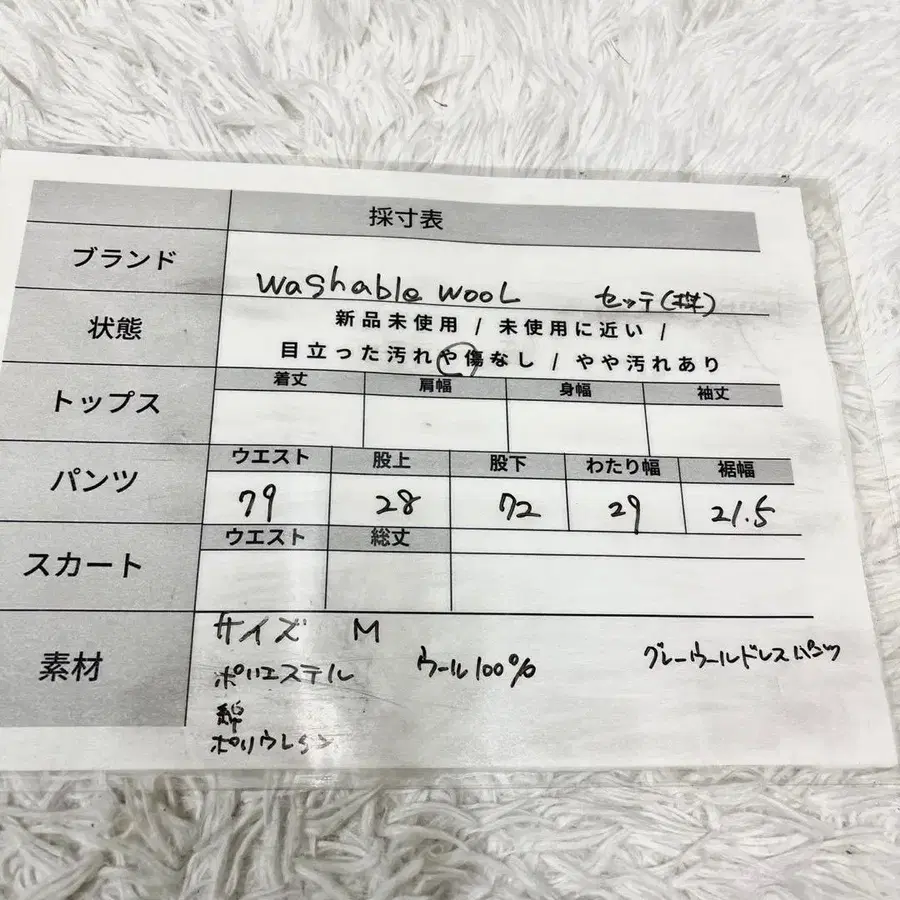 採寸表
ブランド
washable wool セッテ(株)
状態
新品未使用 / 未使用に近い /
目立った汚れや傷なし / やや汚れあり
トップス
着丈 肩幅 身幅 袖丈
パンツ
ウエスト 股上 股下 わたり幅 裾幅
79 28 72 29 21.5
スカート
ウエスト 総丈
素材
サイズ M
ポリエステル ウール100% グレーウールドレスパンツ
綿
ポリウレタン